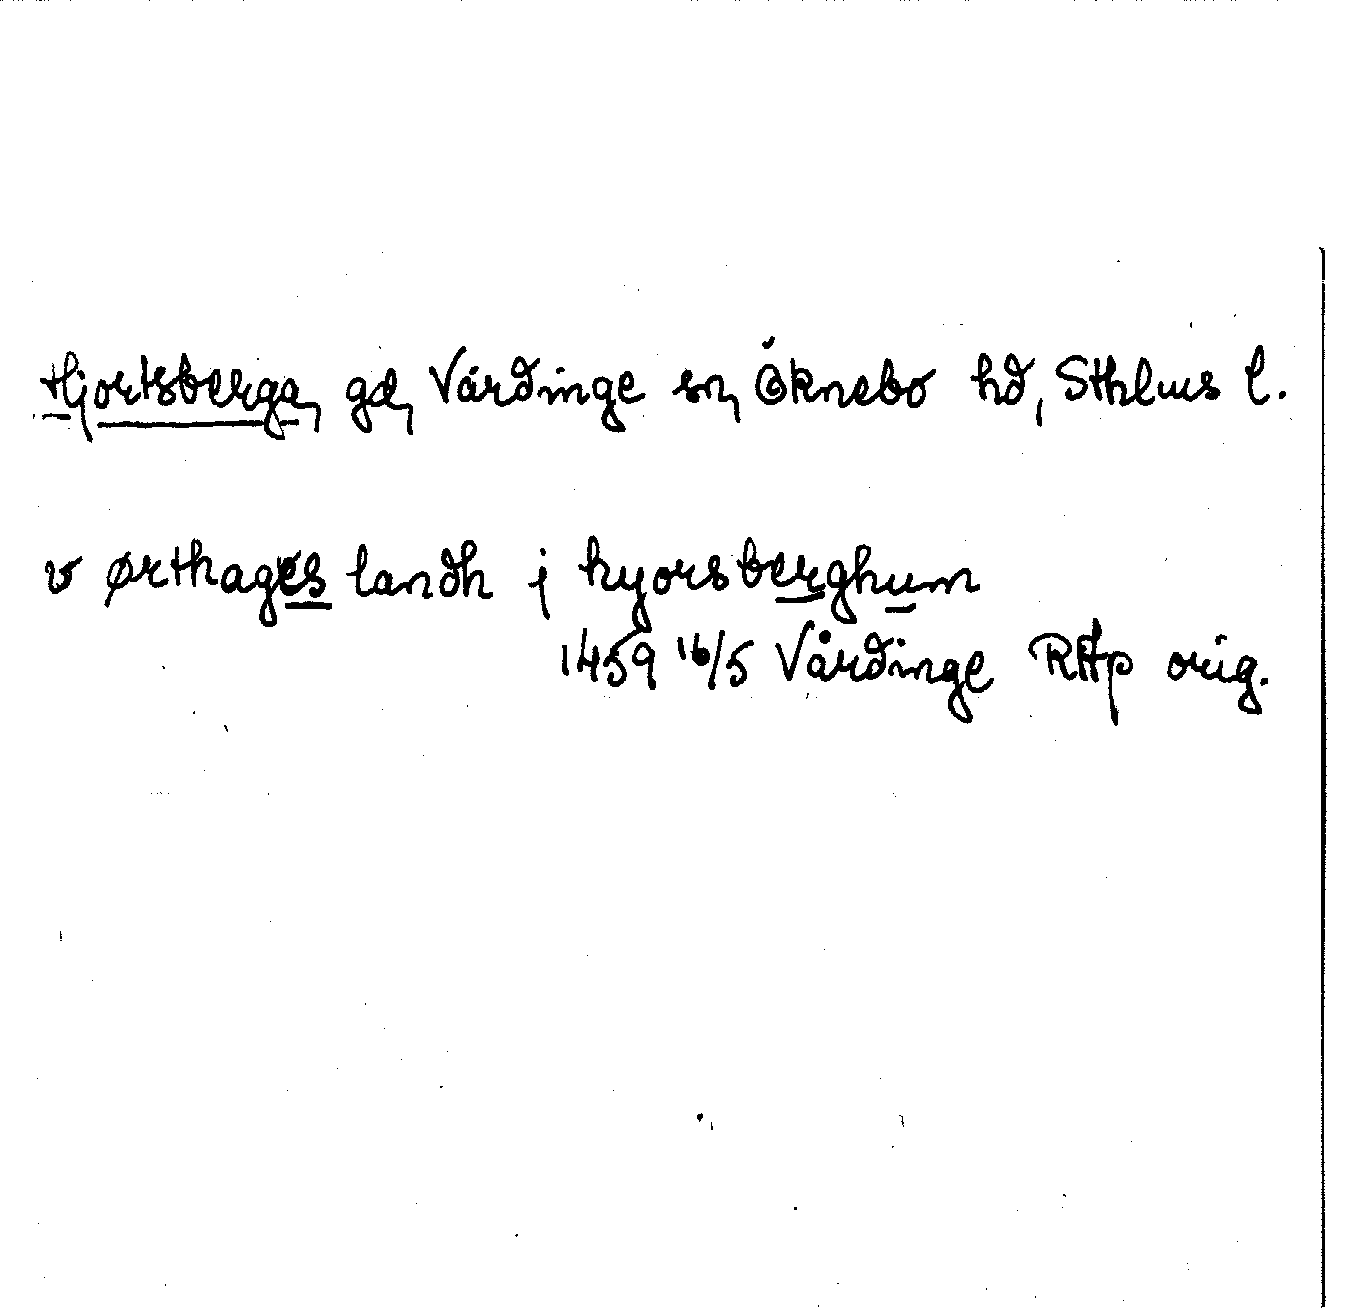 Hjortsberga, gd, Vårdinge sn, Öknebo hd, Sthlms l.
v ørthages landh j hyorsberghum
1459 16/5 Vårdinge RAp orig.